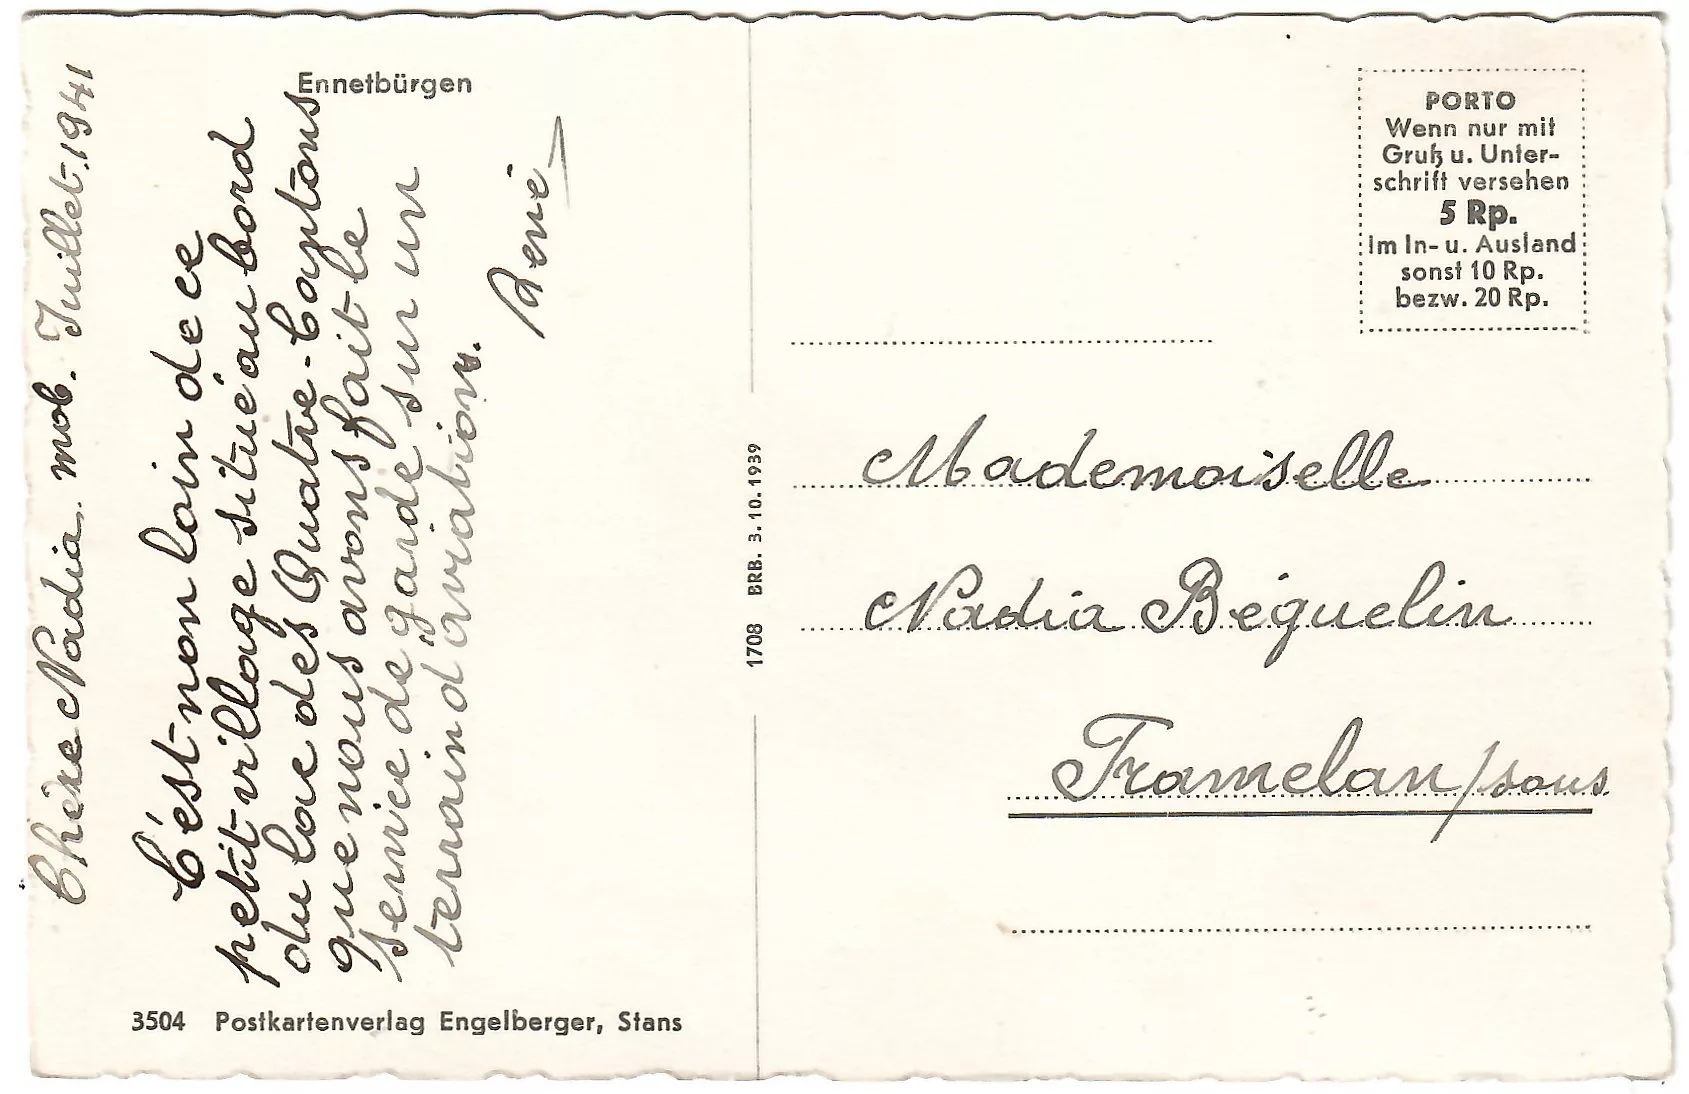 Ennetbürgen
Chère Nadia. mob. Juillet.1941
C'est non loin de ce
petit village situé au bord
du lac des Quatre-Cantons
que nous avons fait le
service de garde sur un
terrain d'aviation.
René
3504 Postkartenverlag Engelberger, Stans
1708 BRB. 3.10.1939
PORTO
Wenn nur mit
Gruß u. Unter-
schrift versehen
5 Rp.
im In- u. Ausland
sonst 10 Rp.
bezw. 20 Rp.
Mademoiselle
Nadia Béguelin
Tramelan/sous.